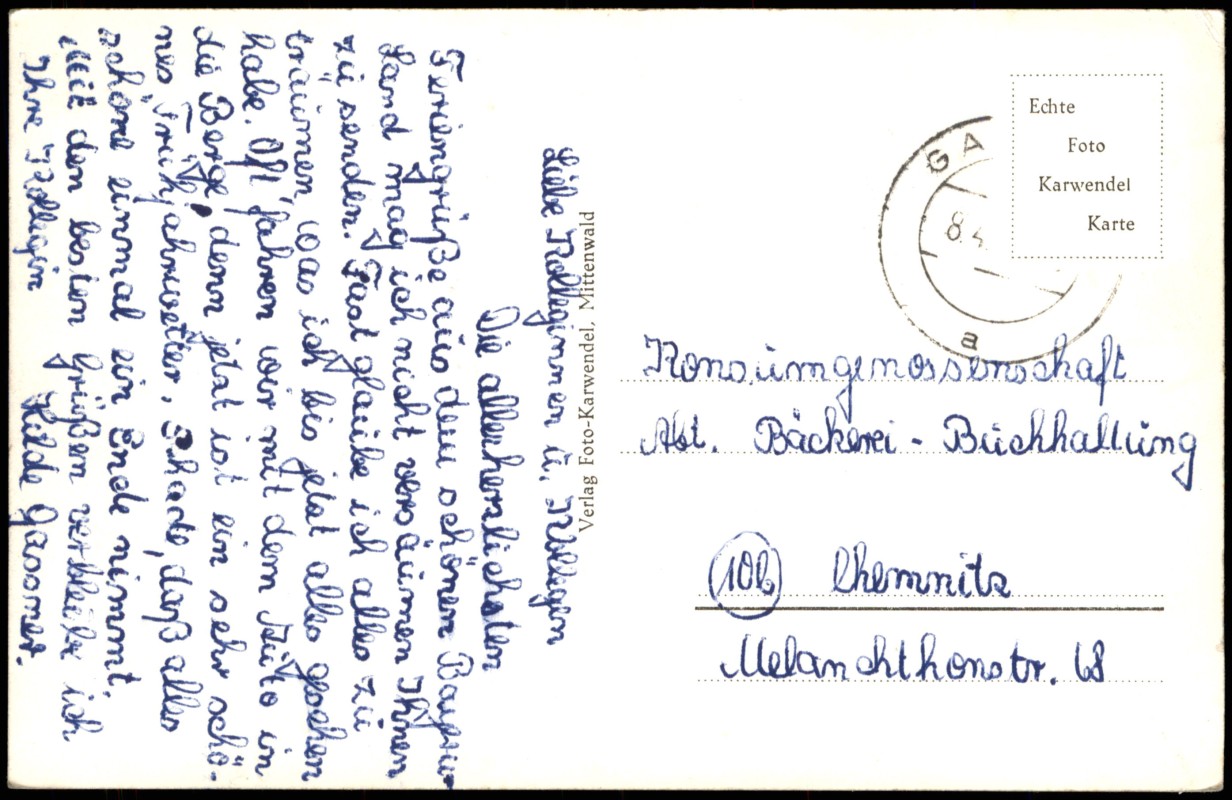 Liebe Kolleginnen u. Kollegin
Die allerherzlichsten
Feriengrüße aus dem schönen Bayern-
Land mag ich nicht versäumen Ihnen
zu senden. Fast glaube ich alles zu
träumen, was ich bis jetzt alles gesehen
habe. Oft fahren wir mit dem Auto in
die Berge, denn jetzt ist ein sehr schö-
nes Frühjahrwetter. Schade, daß alles
schöne einmal ein Ende nimmt.
Mit den besten Grüßen verbleibe ich
Ihre Kollegin Hilde Gassner.
Verlag Foto-Karwendel, Mittenwald
Echte
Foto
Karwendel
Karte
GA
8.4.
a
Konsumgenossenschaft
Abt. Bäckerei - Buchhaltung
(10b) Chemnitz
Melanchthonstr. 68